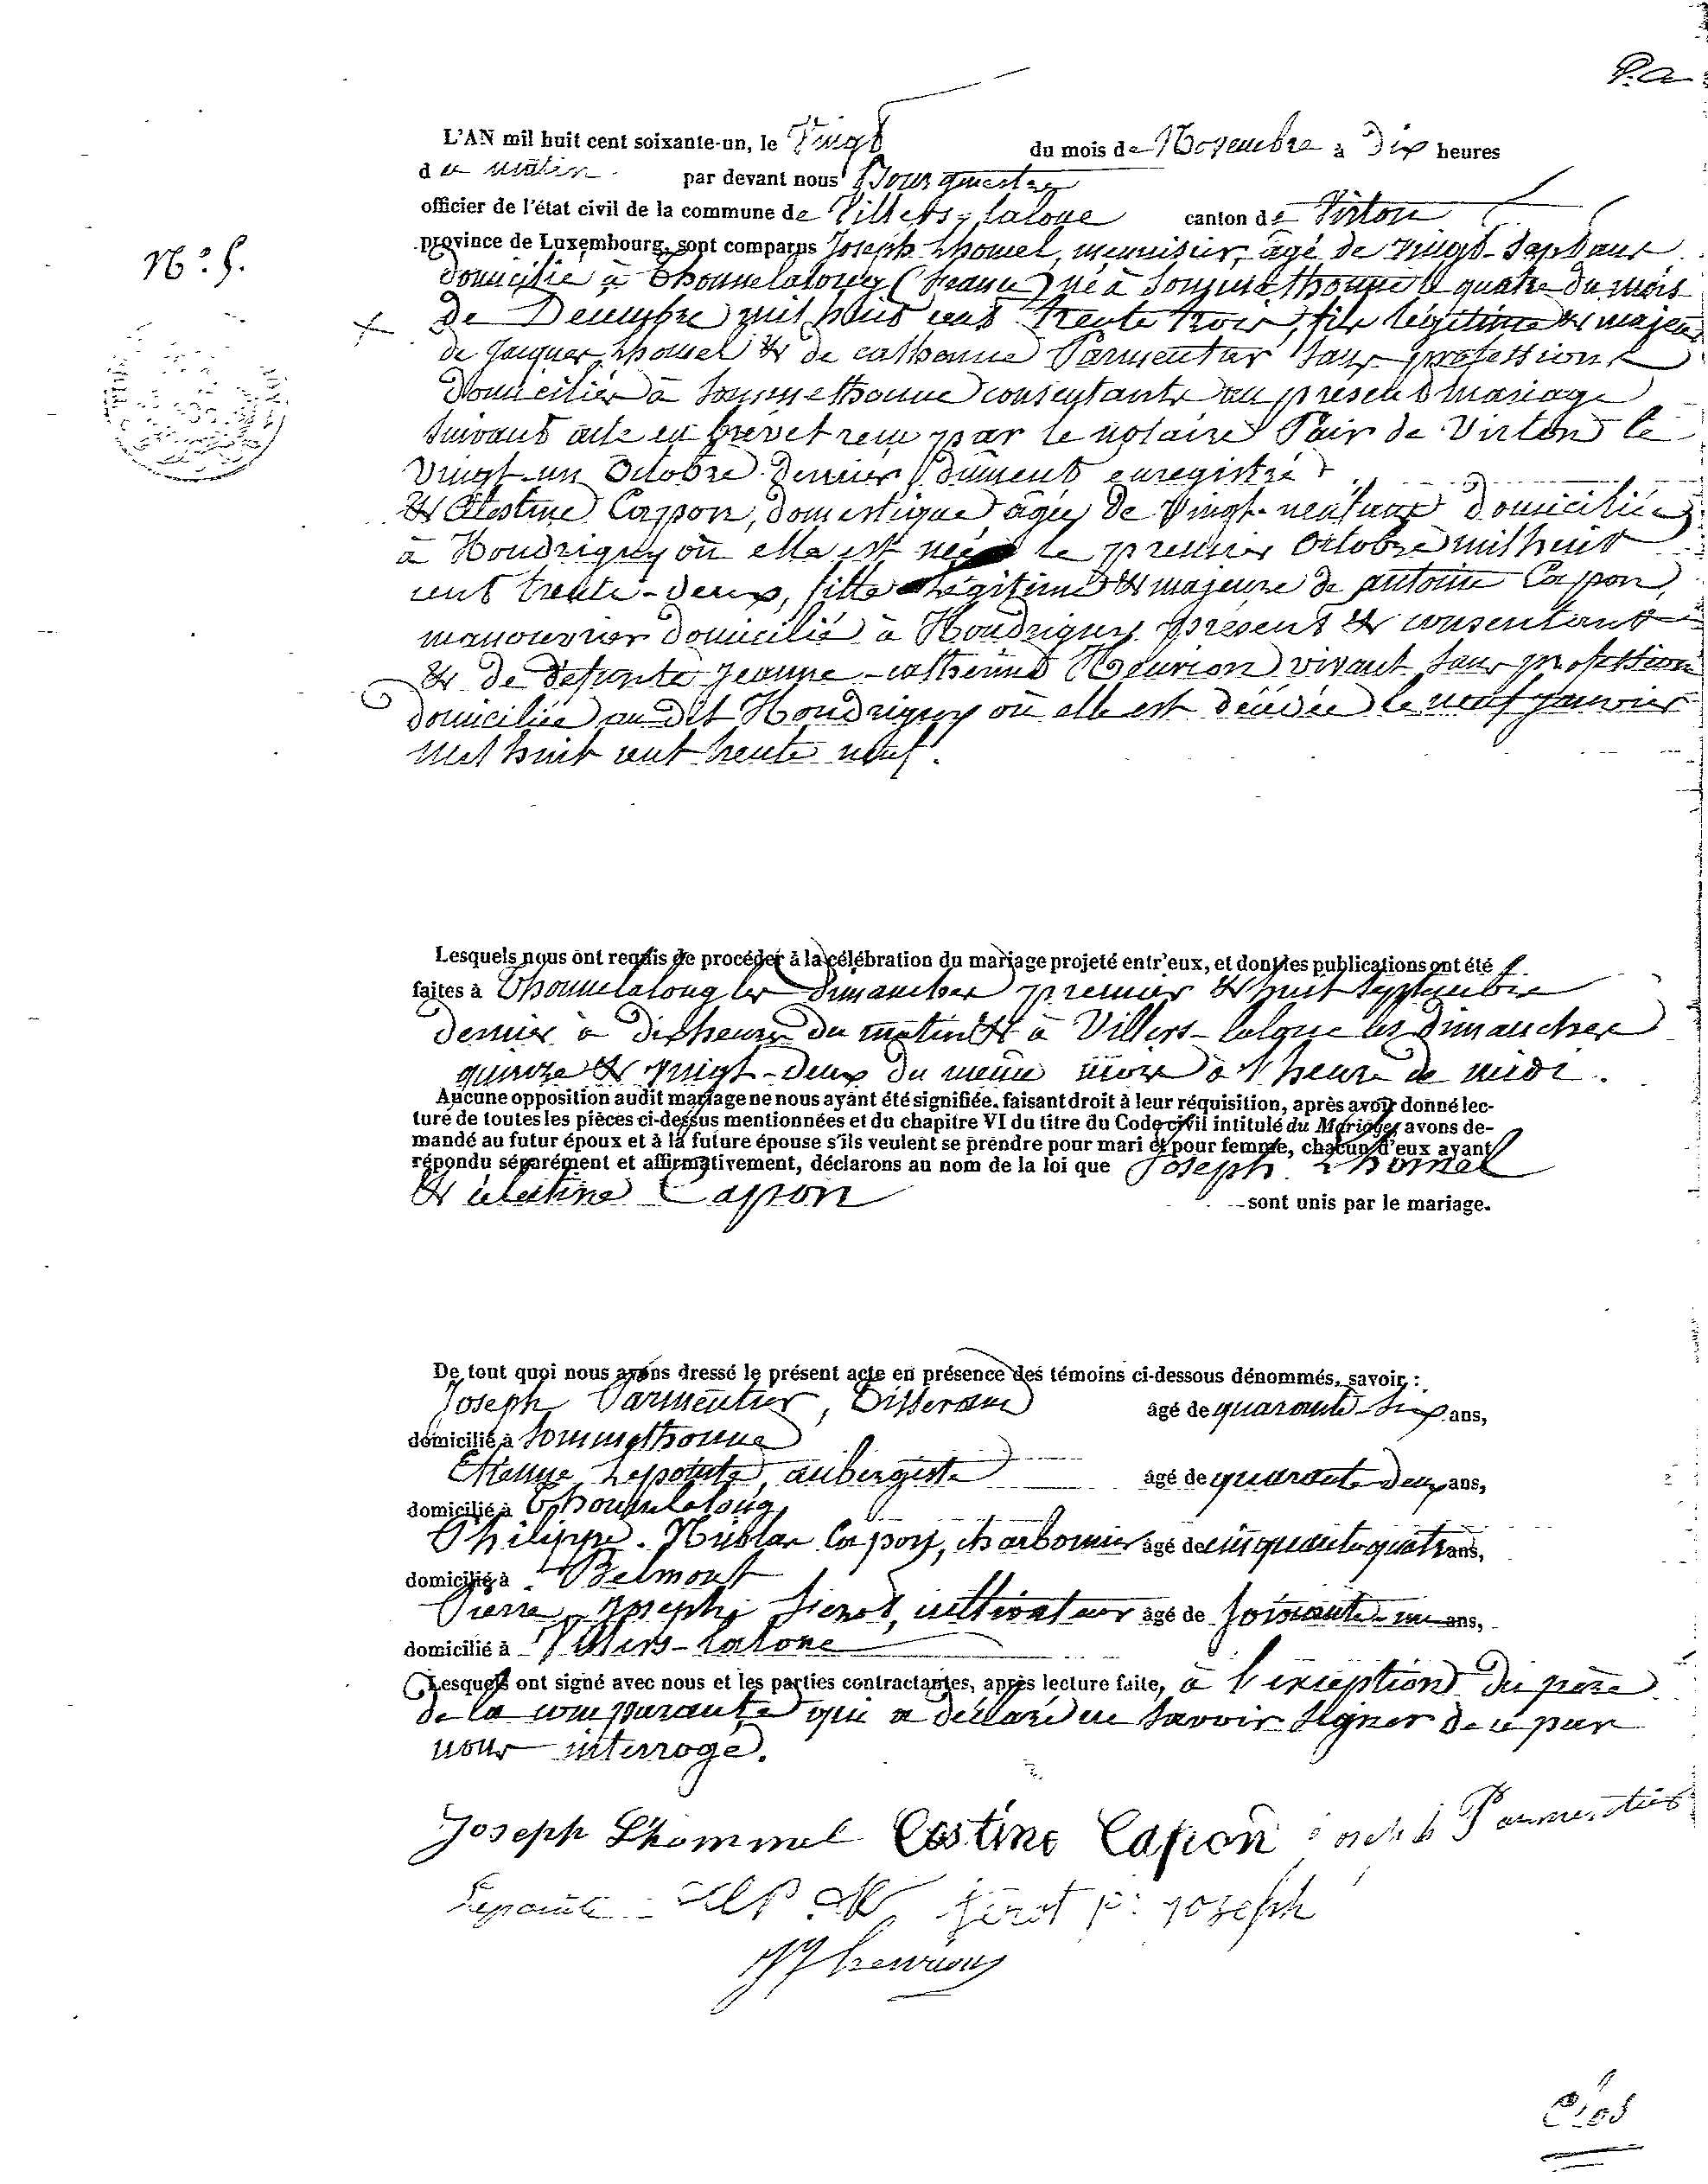 P.a
L'AN mil huit cent soixante-un, le Vingt du mois de Novembre à Dix heures
du matin par devant nous Bourgmestre
officier de l'état civil de la commune de Villers-laloue canton de Virton
N° 5.
province de Luxembourg, sont comparus Joseph Lhomel, menuisier, âgé de vingt-sept ans
domicilié à Thonnelalong (france) né à Sommethonne le quatre du mois
de Décembre mil huit cent trente trois, fils légitime & majeur
de Jacques Lhomel & de catherine Parmentier sans profession
domiciliés à Sommethonne consentants au présent mariage
suivant acte en brevet reçu par le notaire Pair de Virton le
vingt-un Octobre dernier, dûment enregistré
& Célestine Capon, domestique âgée de Vingt-neuf ans domiciliée
à Houdrigny où elle est née le premier Octobre mil huit
cent trente-deux, fille légitime & majeure de antoine Capon,
manouvrier domicilié à Houdrigny présent & consentant
& de défunte Jeanne-catherine Henrion vivant sans profession
domiciliée au dit Houdrigny où elle est décédée le neuf janvier
mil huit cent trente neuf.
Lesquels nous ont requis de procéder à la célébration du mariage projeté entr'eux, et dont les publications ont été
faites à Thonnelalong les dimanches premier & huit Septembre
dernier à dix heures du matin & à Villers-laloue les dimanches
quinze & vingt-deux du même mois à l'heure de midi.
Aucune opposition audit mariage ne nous ayant été signifiée, faisant droit à leur réquisition, après avoir donné lec-
ture de toutes les pièces ci-dessus mentionnées et du chapitre VI du titre du Code civil intitulé du Mariage, avons de-
mandé au futur époux et à la future épouse s'ils veulent se prendre pour mari et pour femme, chacun d'eux ayant
répondu séparément et affirmativement, déclarons au nom de la loi que Joseph Lhomel
& célestine Capon sont unis par le mariage.
De tout quoi nous avons dressé le présent acte en présence des témoins ci-dessous dénommés, savoir :
Joseph Parmentier, Tisserand âgé de quarante-six ans,
domicilié à Sommethonne
Etienne Lepointe, aubergiste âgé de quarante deux ans,
domicilié à Thonnelalong
Philippe-Nicolas Capon, charbonnier âgé de cinquante quatre ans,
domicilié à Belmont
Pierre Joseph fierot, cultivateur âgé de soixante-un ans,
domicilié à Villers-laloue
Lesquels ont signé avec nous et les parties contractantes, après lecture faite, à l'exception du père
de la comparante qui a déclaré ne savoir signer de ce par
nous interrogé.
Joseph Lhommel Cestine Capon Joseph Parmentier
Lepointe fierot p: joseph
henrion